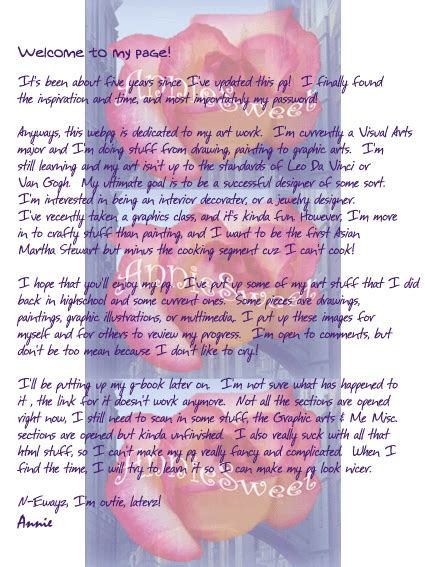 Welcome to my page!
It's been about five years since I've updated this pg! I finally found
the inspiration and time, and most importatnly my password!
Anyways, this webpg is dedicated to my art work. I'm currently a Visual Arts
major and I'm doing stuff from drawing, painting to graphic arts. I'm
still learning and my art isn't up to the standards of Leo Da Vinci or
Van Gogh. My ultimate goal is to be a successful designer of some sort.
I'm interested in being an interior decorater, or a jewelry designer.
I've recently taken a graphics class, and it's kinda fun. However, I'm more
in to crafty stuff than painting, and I want to be the first Asian
Martha Stewart but minus the cooking segment cuz I can't cook!
I hope that you'll enjoy my pg. I've put up some of my art stuff that I did
back in highschool and some current ones. Some pieces are drawings,
paintings, graphic illustrations, or multimedia. I put up these images for
myself and for others to review my progress. I'm open to comments, but
don't be too mean because I don't like to cry!
I'll be putting up my g-book later on. I'm not sure what has happened to
it , the link for it doesn't work anymore. Not all the sections are opened
right now, I still need to scan in some stuff, the Graphic arts & Me Misc.
sections are opened but kinda unfinished. I also really suck with all that
html stuff, so I can't make my pg really fancy and complicated. When I
find the time, I will try to learn it so I can make my pg look nicer.
N-Ewayz, I'm outie, laterz!
Annie
AnnieSweet
AnnieSweet
AnnieSweet